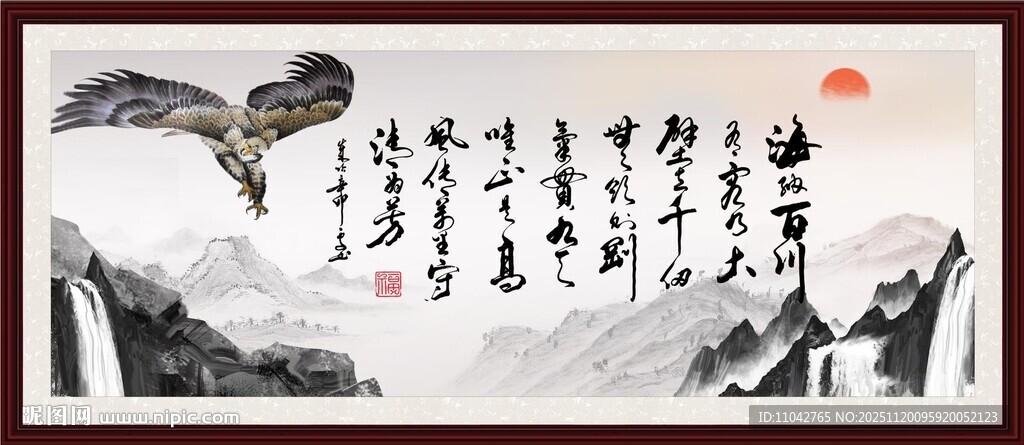 海纳百川
有容乃大
壁立千仞
無欲则剛
氣貫九天
唯正是高
風传萬里守
清为芳
昵图网 www.nipic.com
ID:11042765 NO:20251120095920052123